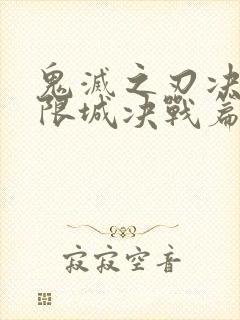 鬼滅之刃决
限城决戰篇
寂寂空音